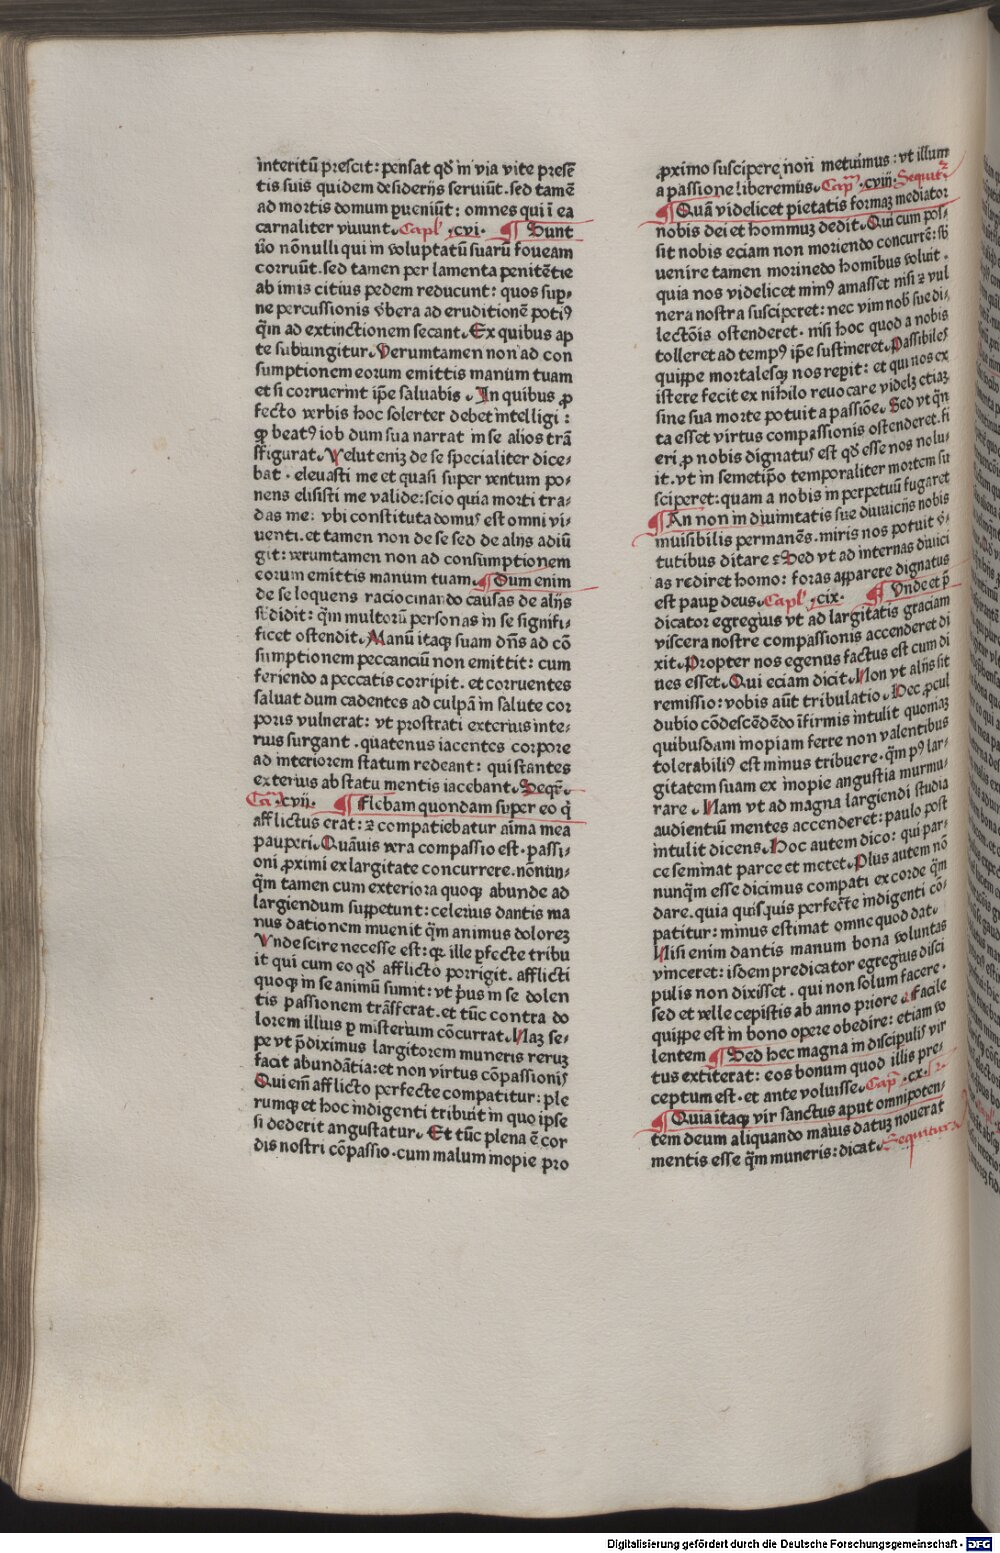 interitū prescit: pensat qđ in via vite presē
tis suis quidem desiderijs seruiūt. sed tamē
ad mortis domum ꝑueniūt: omnes qui ī ea
carnaliter viuunt. Capl' .cvi. ¶ Sunt
ṽo nōnulli qui in voluptatū suarū foueam
corruūt. sed tamen per lamenta penitētie
ab imis citius pedem reducunt: quos suꝑ-
ne percussionis ṽbera ad eruditionem potiꝰ
q̄m ad extinctionem secant. Ex quibus ap
te subiungitur. Verumtamen non ad con
sumptionem eorum emittis manum tuam
et si corruerint ip̄e saluabis. In quibus ꝓ
fecto verbis hoc solerter debet intelligi:
ꝙ beatꝰ iob dum sua narrat in se alios trā
sfigurat. Velut enīꝫ de se specialiter dice-
bat. eleuasti me et quasi super ventum po-
nens elisisti me valide: scio quia morti tra-
das me: vbi constituta domus est omni vi-
uenti. et tamen non de se sed de alijs adiū
git: verumtamen non ad consumptionem
eorum emittis manum tuam. ¶ Dum enim
de se loquens raciocinando causas de alijs
s̄didit: q̄m multorū personas in se signifi-
ficet ostendit. Manū itaqꝫ suam dn̄s ad cō
sumptionem peccanciū non emittit: cum
feriendo a peccatis corripit. et corruentes
saluat dum cadentes ad culpā in salute cor
poris vulnerat: vt prostrati exterius inte-
rius surgant. quatenus iacentes corpore
ad interiorem statum redeant: qui stantes
exterius ab statu mentis iacebant. Seqr̄.
Ca𝔪 .cvii. ¶ Flebam quondam super eo q̄
afflictus erat: ⁊ compatiebatur aīma mea
pauperi. Quāuis vera compassio est. passi-
oni ꝓximi ex largitate concurrere. nōnun-
q̄m tamen cum exteriora quoqꝫ abunde ad
largiendum suppetunt: celerius dantis ma
nus dationem inuenit q̄m animus dolorez
Vnde scire necesse est: qꝛ ille ꝑfecte tribu
it qui cum eo qđ afflicto porrigit. afflicti
quoqꝫ in se animū sumit: vt p̄us in se dolen
tis passionem trāsferat. et tūc contra do
lorem illius ꝑ misterium cōcurrat. Naꝫ se-
pe vt p̄diximus largitorem muneris reruꝫ
facit abundātia: et non virtus cōpassionis
Qui eīm afflicto perfecte compatitur: ple
rumqꝫ et hoc indigenti tribuit in quo ipse
si dederit angustatur. Et tūc plena ē cor
dis nostri cōpassio. cum malum inopie pro
ꝓximo suscipere non metuimus: vt illum
a passione liberemus. Cap𝔪 .cviij. Sequitꝛ
¶ Quā videlicet pietatis formaꝫ mediator
nobis dei et hominuꝫ dedit. Qui cum pos-
sit nobis eciam non moriendo concurrē: sb̄
uenire tamen morinedo hom̄ibus voluit.
quia nos videlicet minꝰ amasset nisi ⁊ vul
nera nostra susciperet: nec vim nob̄ sue di-
lectōis ostenderet. nisi hoc quod a nobis
tolleret ad tempꝰ ip̄e sustineret. Passibiles
quippe mortalesqꝫ nos reperit: et qui nos ex
istere fecit ex nihilo reuocare videlꝫ etiaꝫ
sine sua morte potuit a passiōe. Sed vt q̄n
ta esset virtus compassionis ostenderet. fi
eri ꝓ nobis dignatus est qđ esse nos nolu-
it. vt in semetip̄o temporaliter mortem su
sciperet: quam a nobis in perpetuū fugaret
¶ An non in diuinitatis sue diuicijs nobis
inuisibilis permanēs. miris nos potuit ṽ-
tutibus ditare? Sed vt ad internas diuici
as rediret homo: foras apparere dignatus
est pauꝑ deus. Capl' .cix. ¶ Vnde et p̄
dicator egregius vt ad largitatis graciam
viscera nostre compassionis accenderet di
xit. Propter nos egenus factus est cum di
ues esset. Qui eciam dicit. Non vt alijs sit
remissio: vobis aūt tribulatio. Hec ꝓcul
dubio cōdescēdēdo īfirmis intulit quoniaꝫ
quibusdam inopiam ferre non valentibus
tolerabiliꝰ est minus tribuere. q̄m pꝰ lar-
gitatem suam ex inopie angustia murmu-
rare. Nam vt ad magna largiendi studia
audientiū mentes accenderet: paulo post
intulit dicens. Hoc autem dico: qui par-
ce seminat parce et metet. Plus autem nō
nunq̄m esse dicimus compati ex corde q̄m
dare. quia quisquis perfecte indigenti cō-
patitur: minus estimat omne quod dat.
Nisi enim dantis manum bona voluntas
vinceret: isdem predicator egregius disci
pulis non dixisset. qui non solum facere.
sed et velle cepistis ab anno priore. Facile
quippe est in bono opere obedire: etiam vo
lentem ¶ Sed hec magna in discipulis vir
tus extiterat: eos bonum quod illis pre-
ceptum est. et ante voluisse. Cap𝔪 .cx.
¶ Quia itaqꝫ vir sanctus aput omnipoten-
tem deum aliquando maius datuꝫ nouerat
mentis esse q̄m muneris: dicat. Sequitur